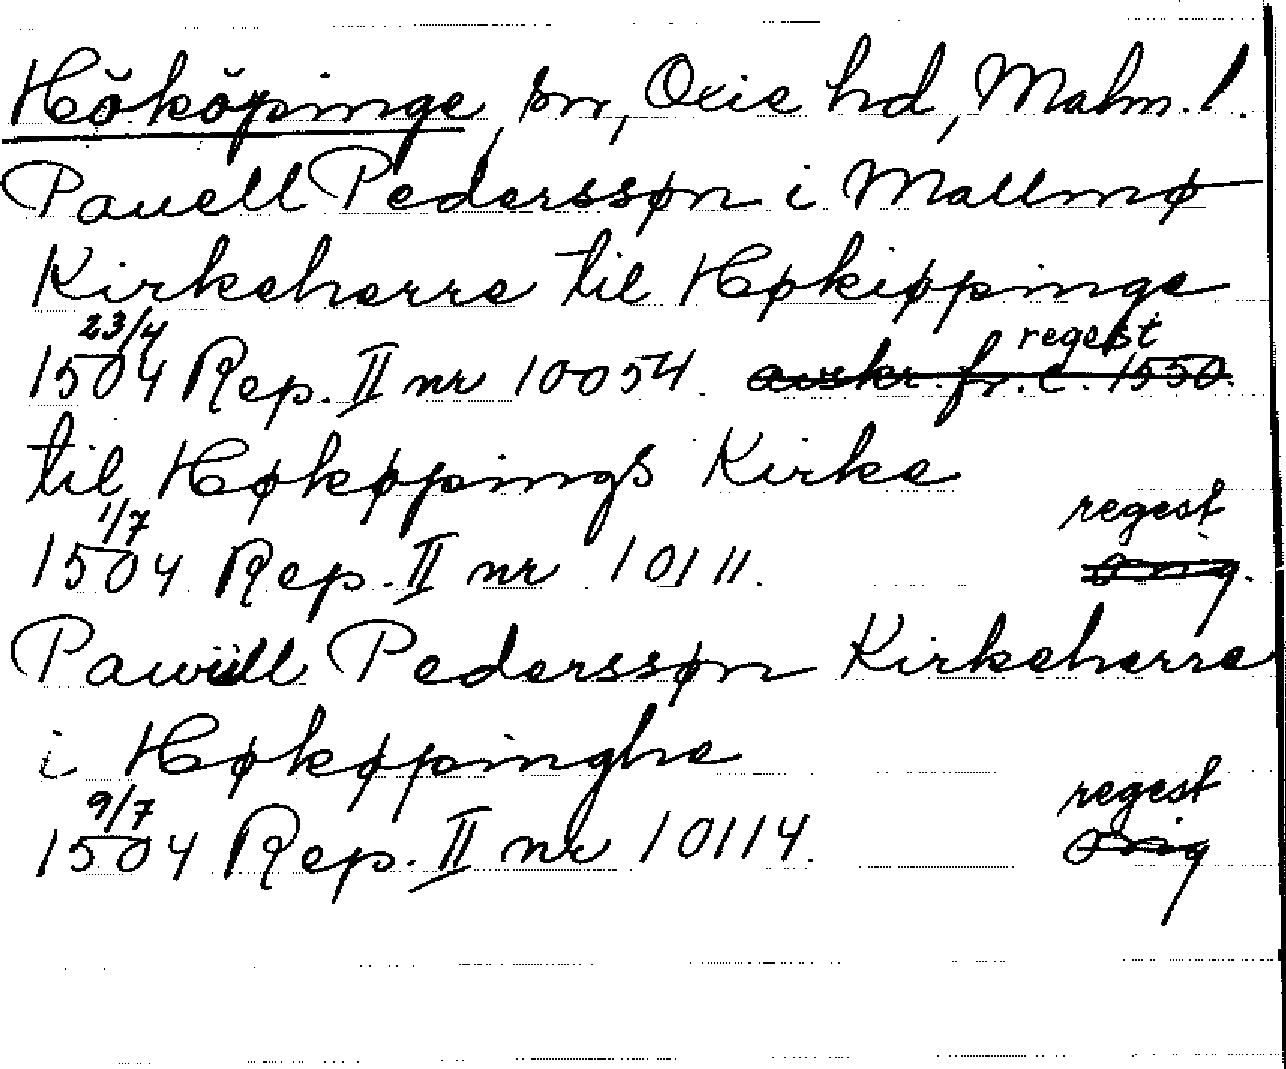 Hököpinge, sn, Oxie hd, Malm. l.
Pauell Pederssøn i Mallmø
Kirkeherre til Høkiøppinge
23/4 regest
1504 Rep. II nr 10054. avskr. fr. c. 1550.
til Høkøppings Kirke
1/7 regest
1504 Rep. II nr 10111. orig.
Pawüll Pederssøn Kirkeherre
i Høkøpinghe
9/7 regest
1504 Rep. II nr 10114. orig